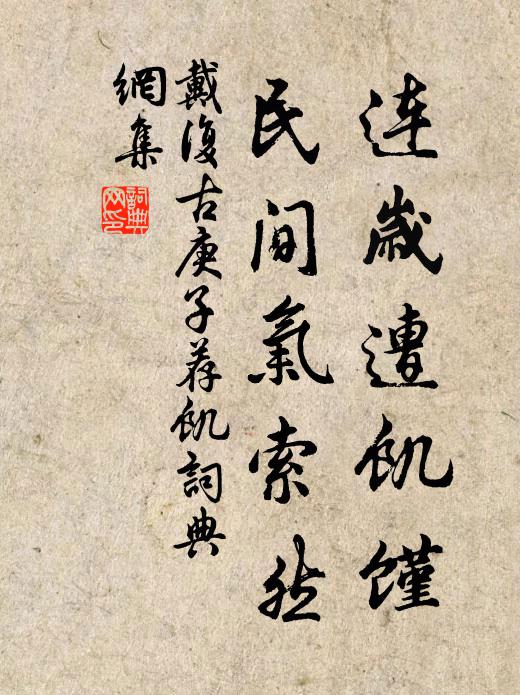 连歲遭飢饉
民間氣索然
戴復古庚子荐飢詞典
網集
詞典網印